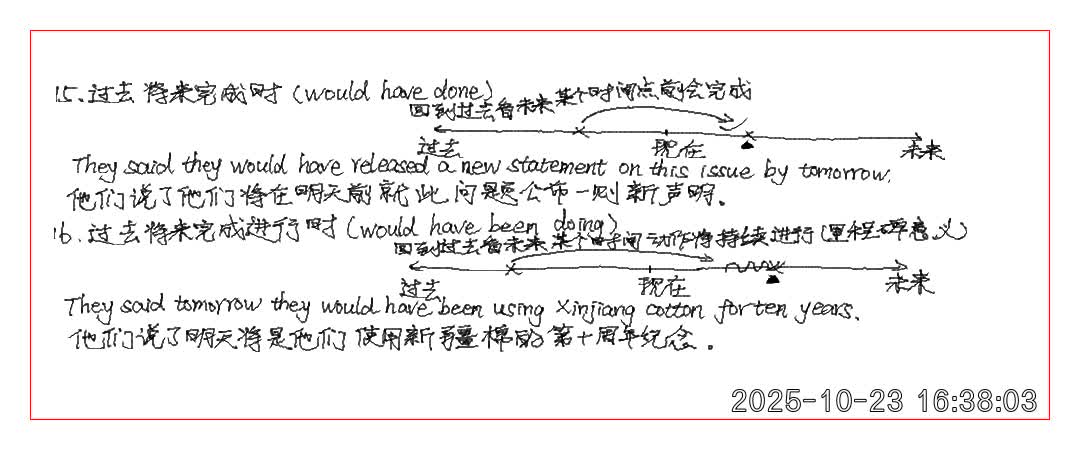 15.过去将来完成时(would have done)
回到过去看未来某个时间点前会完成
过去 现在 未来
They said they would have released a new statement on this issue by tomorrow.
他们说了他们将在明天前就此问题公布一则新声明。
16.过去将来完成进行时(would have been doing)
回到过去看未来某个时间动作将持续进行(里程碑意义)
过去 现在 未来
They said tomorrow they would have been using Xinjiang cotton for ten years.
他们说了明天将是他们使用新疆棉的第十周年纪念。
2025-10-23 16:38:03